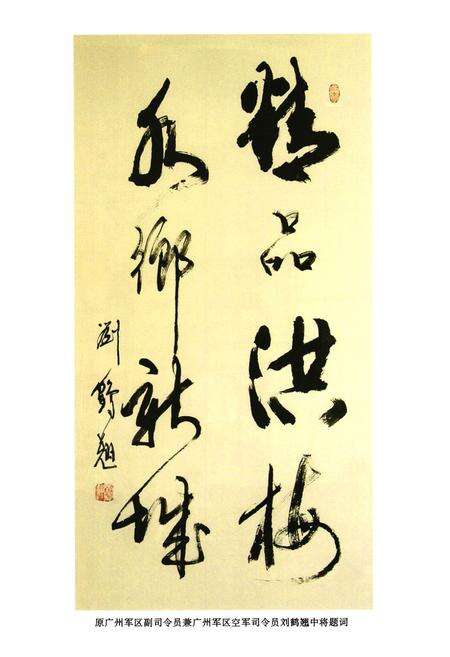 精品洪梅
水鄉新城
劉鶴翹
原广州军区副司令员兼广州军区空军司令员刘鹤翘中将题词